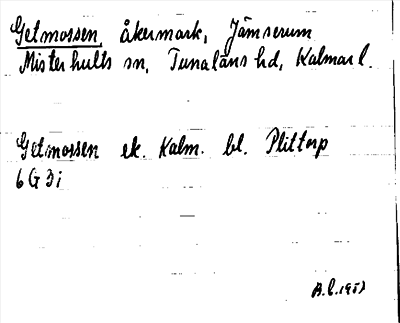 Getmossen, åkermark, Jämserum
Misterhults sn, Tunaläns hd, Kalmar l.
Getmossen ek. Kalm. bl. Plittorp
6 G 3 i